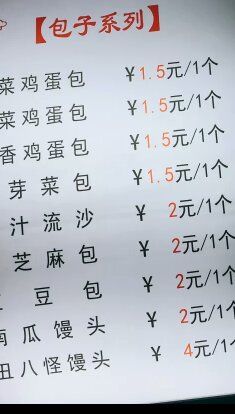 【包子系列】
菜鸡蛋包 ¥1.5元/1个
菜鸡蛋包 ¥1.5元/1个
香鸡蛋包 ¥1.5元/1个
芽菜包 ¥1.5元/1个
汁流沙 ¥ 2元/1个
芝麻包 ¥ 2元/1个
豆包 ¥ 2元/1个
南瓜馒头 ¥ 2元/1个
丑八怪馒头 ¥ 4元/1个